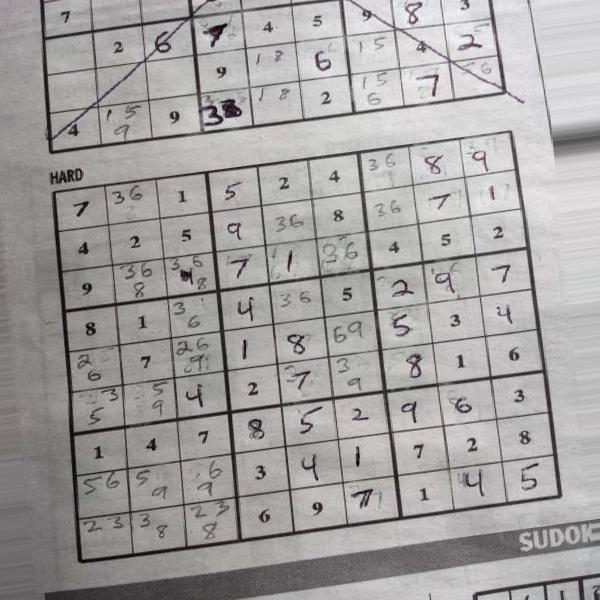 7 9 8 3
2 6 7 4 5 1 5 4 2
9 1 8 6 1 5 7
4 1 5 9 9 3 1 8 2 6
HARD
7 3 6 1 5 2 4 3 6 8 9
4 2 5 9 3 6 8 3 6 7 1
9 3 6 8 3 6 8 7 1 3 6 4 5 2
8 1 3 6 4 3 6 5 2 9 7
2 6 7 2 6 9 1 8 6 9 5 3 4
3 5 5 9 4 2 7 3 9 8 1 6
1 4 7 8 5 2 9 6 3
5 6 5 9 6 9 3 4 1 7 2 8
2 3 3 8 2 3 8 6 9 7 1 4 5
SUDOK